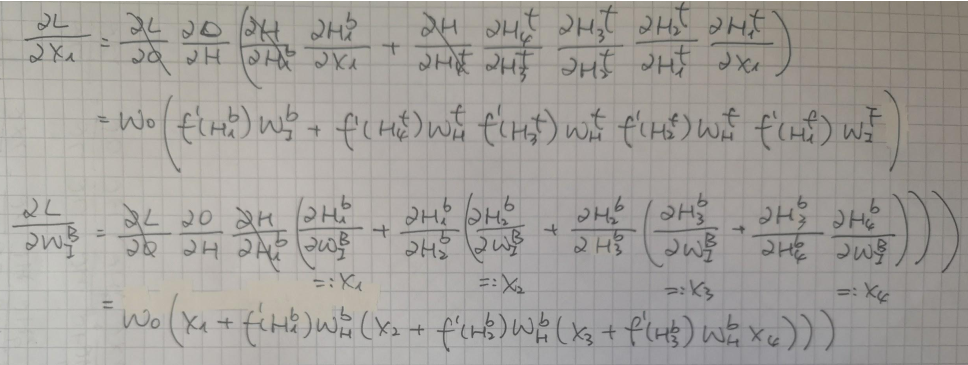 ∂L/∂X₁ = ∂L/∂O ∂O/∂H (∂H/∂H₁ᵇ ∂H₁ᵇ/∂X₁ + ∂H/∂H₄ᶠ ∂H₄ᶠ/∂H₃ᶠ ∂H₃ᶠ/∂H₂ᶠ ∂H₂ᶠ/∂H₁ᶠ ∂H₁ᶠ/∂X₁)
= W₀ (f'(H₁ᵇ) W_I^b + f'(H₄ᶠ) W_H^f f'(H₃ᶠ) W_H^f f'(H₂ᶠ) W_H^f f'(H₁ᶠ) W_I^F)
∂L/∂W_I^B = ∂L/∂O ∂O/∂H ∂H/∂H₁ᵇ (∂H₁ᵇ/∂W_I^B + ∂H₁ᵇ/∂H₂ᵇ (∂H₂ᵇ/∂W_I^B + ∂H₂ᵇ/∂H₃ᵇ (∂H₃ᵇ/∂W_I^B + ∂H₃ᵇ/∂H₄ᵇ ∂H₄ᵇ/∂W_I^B))))
=: X₁ =: X₂ =: X₃ =: X₄
= W₀ (X₁ + f'(H₁ᵇ) W_H^b (X₂ + f'(H₂ᵇ) W_H^b (X₃ + f'(H₃ᵇ) W_H^b X₄)))